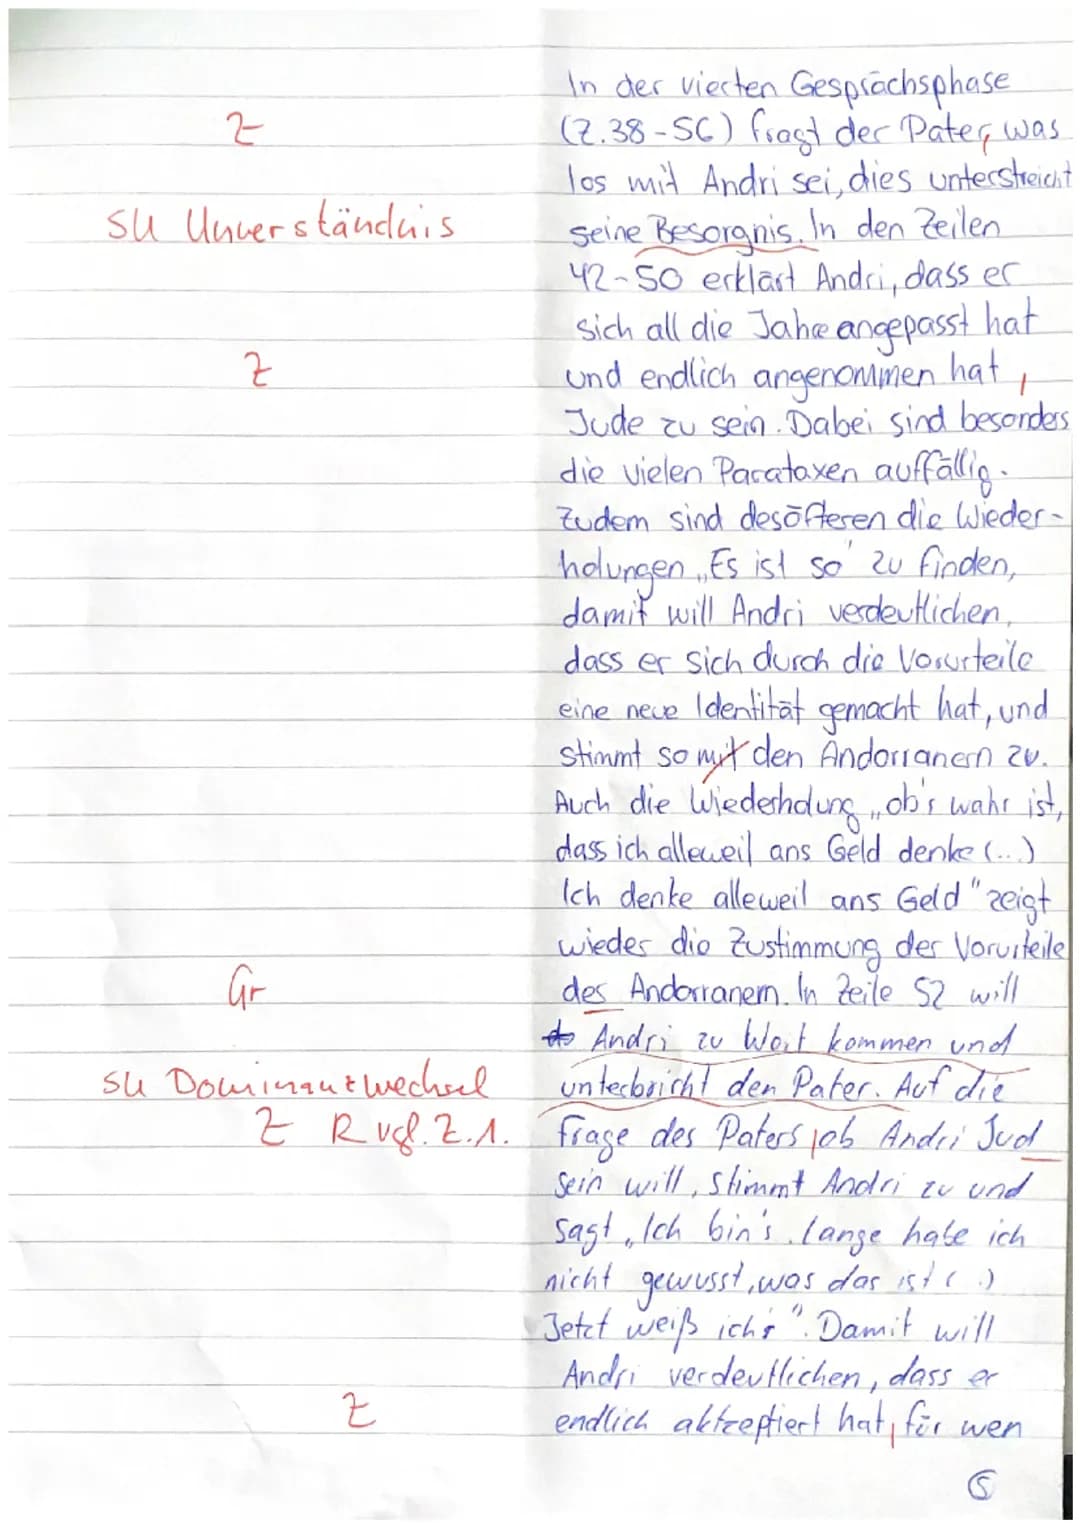 In der vierten Gesprächsphase
Z (Z.38-56) fragt der Pater, was
los mit Andri sei, dies unterstreicht
SU Unverständnis seine Besorgnis. In den Zeilen
42-50 erklärt Andri, dass er
sich all die Jahre angepasst hat
Z und endlich angenommen hat,
Jude zu sein. Dabei sind besonders
die vielen Parataxen auffällig.
Zudem sind desöfteren die Wieder-
holungen „Es ist so" zu finden,
damit will Andri verdeutlichen,
dass er sich durch die Vorurteile
eine neue Identität gemacht hat, und
stimmt so mit den Andorranern zu.
Auch die Wiederholung „ob's wahr ist,
dass ich alleweil ans Geld denke (...)
Ich denke alleweil ans Geld" zeigt
wieder die Zustimmung der Vorurteile
Gr des Andorranern. In Zeile 52 will
Andri zu Wort kommen und
SU Dominanzwechsel unterbricht den Pater. Auf die
Z R vgl. Z.1. Frage des Paters, ob Andri Jud
sein will, stimmt Andri zu und
sagt „Ich bin's. Lange habe ich
nicht gewusst, was das ist (..)
Jetzt weiß ich's". Damit will
Andri verdeutlichen, dass er
Z endlich aktzeptiert hat, für wen
5